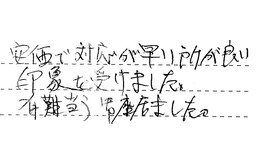 安価で対応が早い所が良い
印象を受けました。
有難う御座居ました。